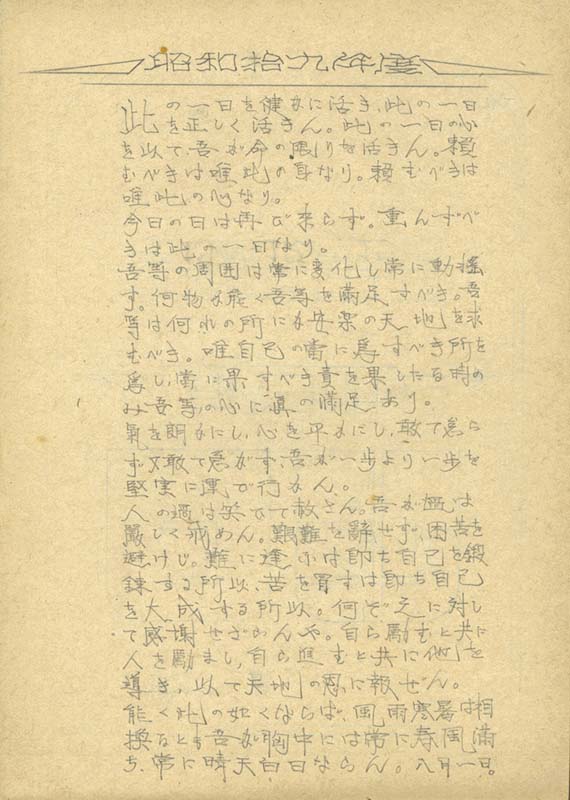 昭和拾九年度
此の一日を健かに活き、此の一日
を正しく活きん。此の一日の心
を以て、吾が命の限りを活きん。頼
むべきは唯此の身なり。頼むべきは
唯此の心なり。
今日の日は再び来らず。重んずべ
きは此の一日なり。
吾等の周囲は常に変化し常に動揺
す。何物か能く吾等を満足すべき。吾
等は何れの所にか安楽の天地を求
むべき。唯自己の当に為すべき所を
為し、当に果すべき責を果したる時の
み吾等の心に真の満足あり。
気を朗かにし、心を平かにし、敢て怠ら
ず又敢て急がず、吾が一歩より一歩を
堅実に運で行かん。
人の過は笑って赦さん。吾が過は
厳しく戒めん。艱難を辞せず、困苦を
避けじ。難に逢ふは即ち自己を鍛
錬する所以、苦を冒すは即ち自己
を大成する所以。何ぞ之に対し
て感謝せざらんや。自ら励むと共に
人を励まし、自ら進むと共に他を
導き、以て天地の恩に報ぜん。
能く此の如くならば、風雨寒暑は相
換るとも吾が胸中には常に春風満
ち、常に晴天白日ならん。八月一日。